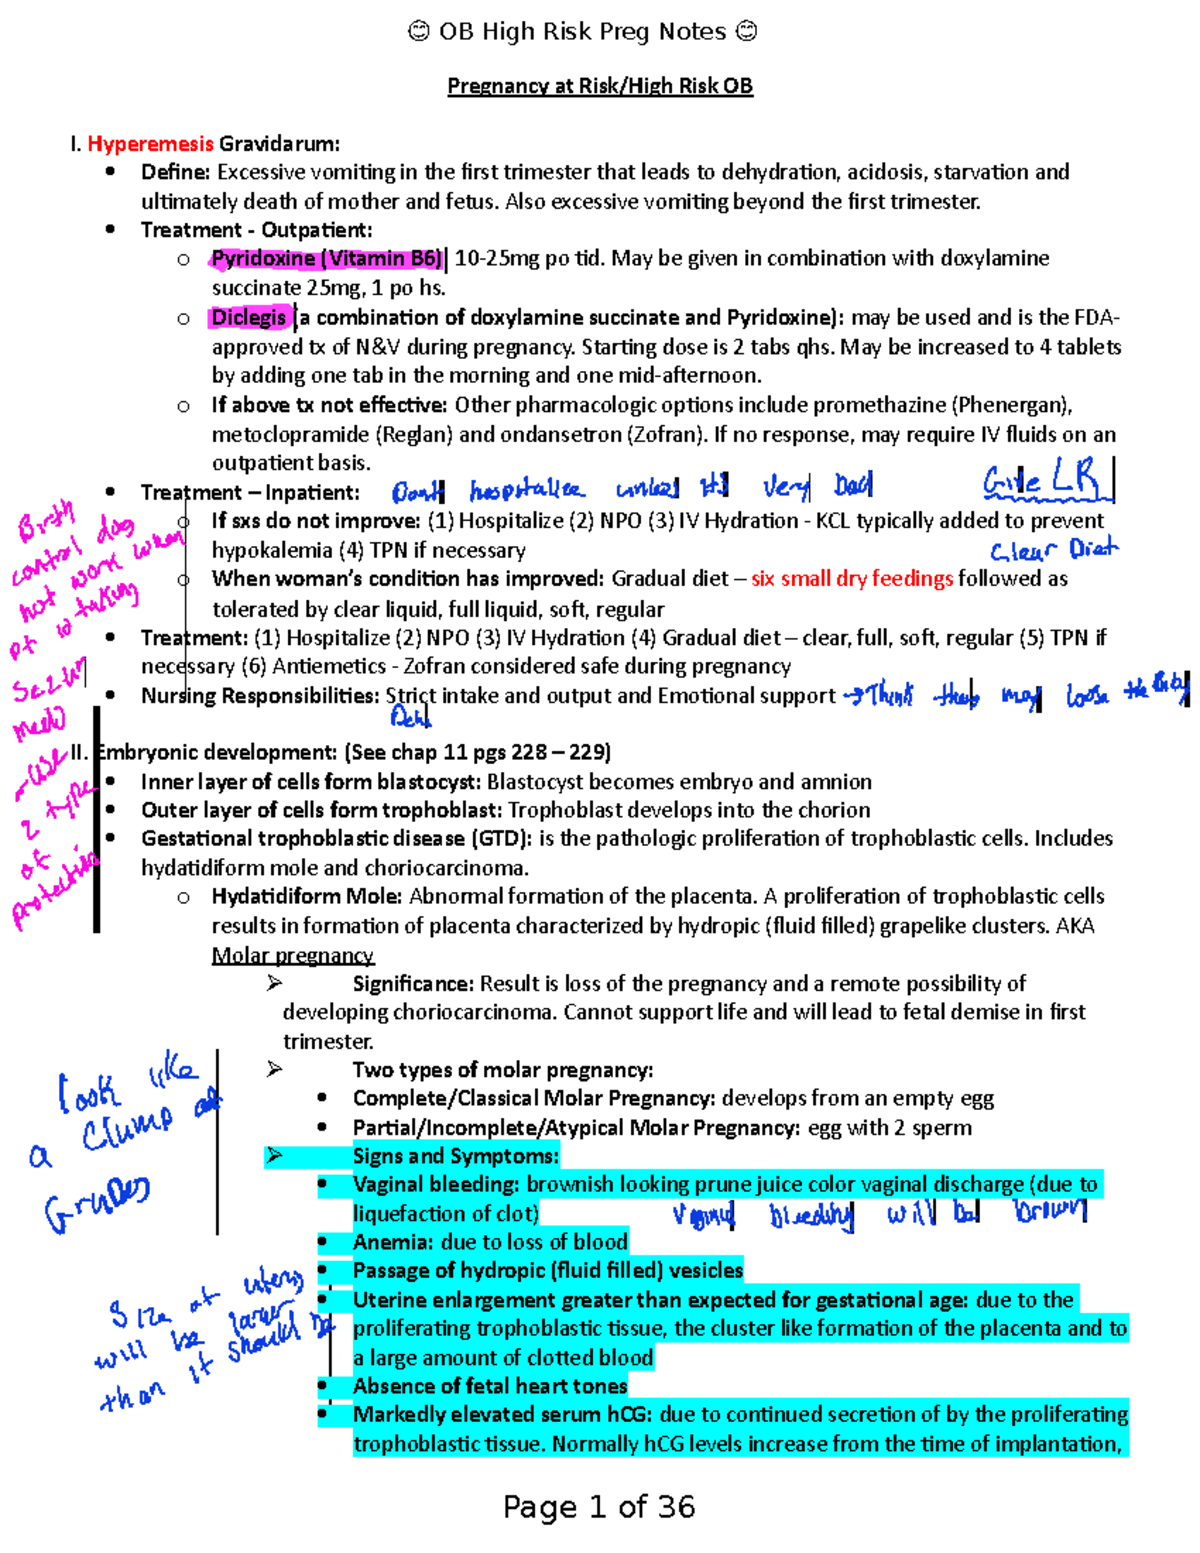 😊 OB High Risk Preg Notes 😊
Pregnancy at Risk/High Risk OB
I. Hyperemesis Gravidarum:
• Define: Excessive vomiting in the first trimester that leads to dehydration, acidosis, starvation and
ultimately death of mother and fetus. Also excessive vomiting beyond the first trimester.
• Treatment - Outpatient:
o Pyridoxine (Vitamin B6) 10-25mg po tid. May be given in combination with doxylamine
succinate 25mg, 1 po hs.
o Diclegis (a combination of doxylamine succinate and Pyridoxine): may be used and is the FDA-
approved tx of N&V during pregnancy. Starting dose is 2 tabs qhs. May be increased to 4 tablets
by adding one tab in the morning and one mid-afternoon.
o If above tx not effective: Other pharmacologic options include promethazine (Phenergan),
metoclopramide (Reglan) and ondansetron (Zofran). If no response, may require IV fluids on an
outpatient basis.
• Treatment – Inpatient: Dont hospitalize unless its very bad Give LR
o If sxs do not improve: (1) Hospitalize (2) NPO (3) IV Hydration - KCL typically added to prevent
hypokalemia (4) TPN if necessary Clear Diet
o When woman's condition has improved: Gradual diet – six small dry feedings followed as
tolerated by clear liquid, full liquid, soft, regular
• Treatment: (1) Hospitalize (2) NPO (3) IV Hydration (4) Gradual diet – clear, full, soft, regular (5) TPN if
necessary (6) Antiemetics - Zofran considered safe during pregnancy
• Nursing Responsibilities: Strict intake and output and Emotional support → Think they may loose the baby
Birth
control
not work when
pt is taking
meds
-use
2 type
of
protection
II. Embryonic development: (See chap 11 pgs 228 – 229)
• Inner layer of cells form blastocyst: Blastocyst becomes embryo and amnion
• Outer layer of cells form trophoblast: Trophoblast develops into the chorion
• Gestational trophoblastic disease (GTD): is the pathologic proliferation of trophoblastic cells. Includes
hydatidiform mole and choriocarcinoma.
o Hydatidiform Mole: Abnormal formation of the placenta. A proliferation of trophoblastic cells
results in formation of placenta characterized by hydropic (fluid filled) grapelike clusters. AKA
Molar pregnancy
➢ Significance: Result is loss of the pregnancy and a remote possibility of
developing choriocarcinoma. Cannot support life and will lead to fetal demise in first
trimester.
➢ Two types of molar pregnancy:
• Complete/Classical Molar Pregnancy: develops from an empty egg
• Partial/Incomplete/Atypical Molar Pregnancy: egg with 2 sperm
look like
a Clump of
Grapes
➢ Signs and Symptoms:
• Vaginal bleeding: brownish looking prune juice color vaginal discharge (due to
liquefaction of clot) Vaginal bleeding will be brown
• Anemia: due to loss of blood
• Passage of hydropic (fluid filled) vesicles
• Uterine enlargement greater than expected for gestational age: due to the
proliferating trophoblastic tissue, the cluster like formation of the placenta and to
a large amount of clotted blood
Size of uterus
will be larger
than it should be
• Absence of fetal heart tones
• Markedly elevated serum hCG: due to continued secretion of by the proliferating
trophoblastic tissue. Normally hCG levels increase from the time of implantation,
Page 1 of 36